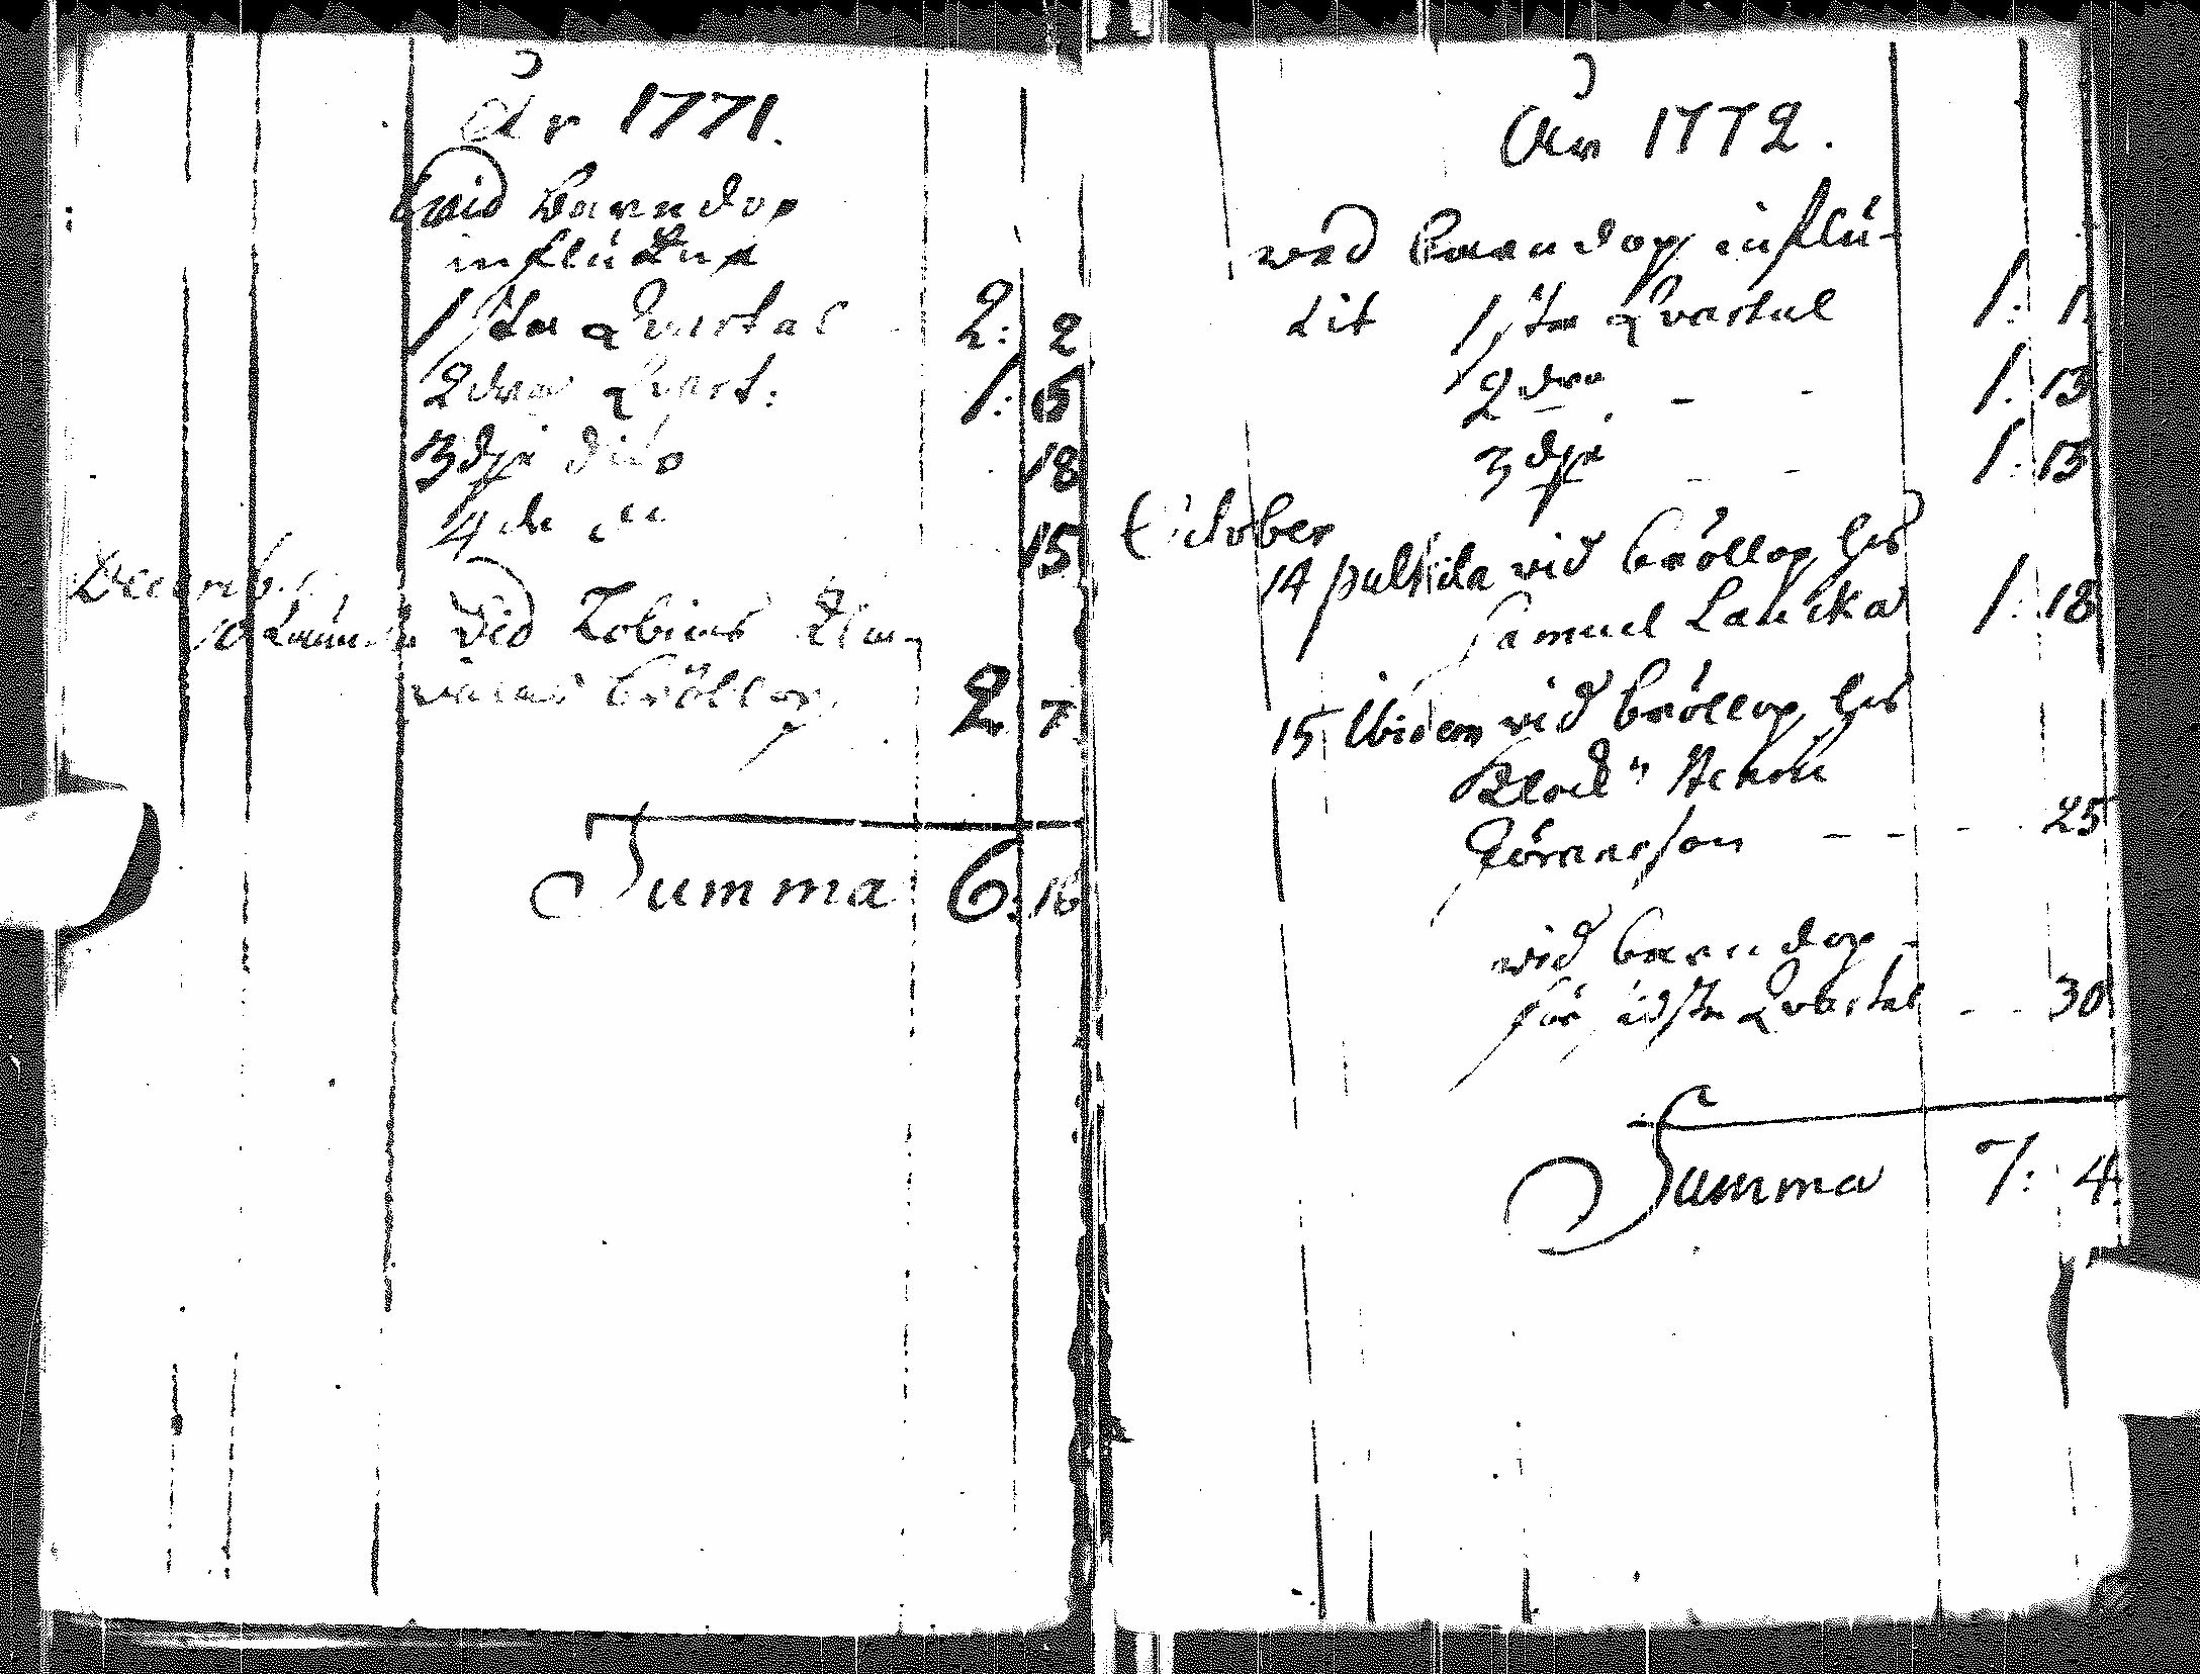 År 1771.
wid Barndop
influtne
1sta Qvartal - 2: 2
2dra Qvart: 1: 6
3dje dito 18
4de 15
Decemb.
10 wid Tobias
Bröllop 2 7
Summa 6: 16
År 1772.
wid Barndop influ-
tit 1sta Qvartal 1: 1
2dra - - 1: 13
3dje - - 1: 13
October
14 pulkila wid Bröllop hos
Samuel Laucka 1: 18
15 Ibidem wid Bröllop hos
Henric
Göransson - - - 25
wid barndop
för sidsta Qvartal - - 30
Summa 7: 4